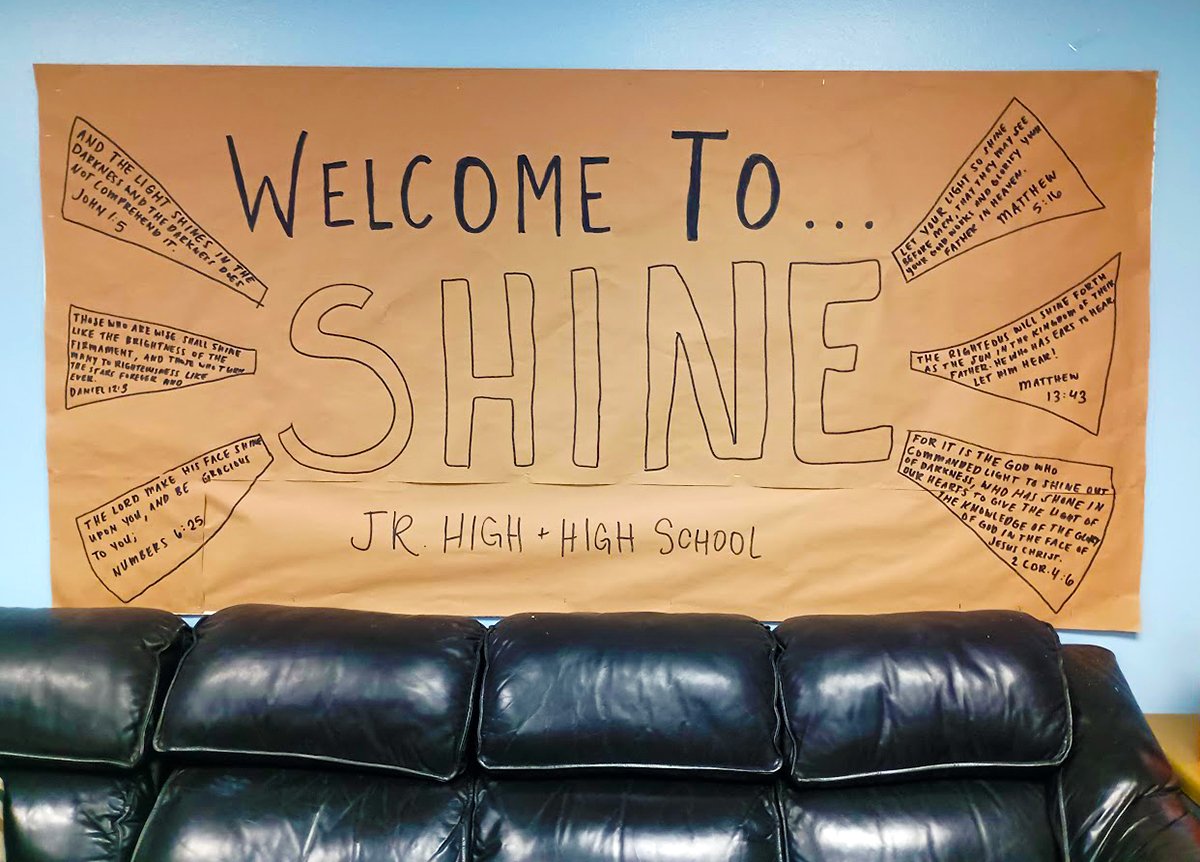 WELCOME TO...
SHINE
JR. HIGH + HIGH SCHOOL
AND THE LIGHT SHINES IN THE
DARKNESS AND THE DARKNESS DOES
NOT COMPREHEND IT.
JOHN 1:5
THOSE WHO ARE WISE SHALL SHINE
LIKE THE BRIGHTNESS OF THE
FIRMAMENT, AND THOSE WHO TURN
MANY TO RIGHTEOUSNESS LIKE
THE STARS FOREVER AND
EVER.
DANIEL 12:3
THE LORD MAKE HIS FACE SHINE
UPON YOU, AND BE GRACIOUS
TO YOU;
NUMBERS 6:25
LET YOUR LIGHT SO SHINE
BEFORE MEN THAT THEY MAY SEE
YOUR GOOD WORKS AND GLORIFY YOUR
FATHER IN HEAVEN.
MATTHEW
5:16
THE RIGHTEOUS WILL SHINE FORTH
AS THE SUN IN THE KINGDOM OF THEIR
FATHER. HE WHO HAS EARS TO HEAR,
LET HIM HEAR!
MATTHEW
13:43
FOR IT IS THE GOD WHO
COMMANDED LIGHT TO SHINE OUT
OF DARKNESS, WHO HAS SHONE IN
OUR HEARTS TO GIVE THE LIGHT OF
THE KNOWLEDGE OF THE GLORY
OF GOD IN THE FACE OF
JESUS CHRIST.
2 COR. 4:6